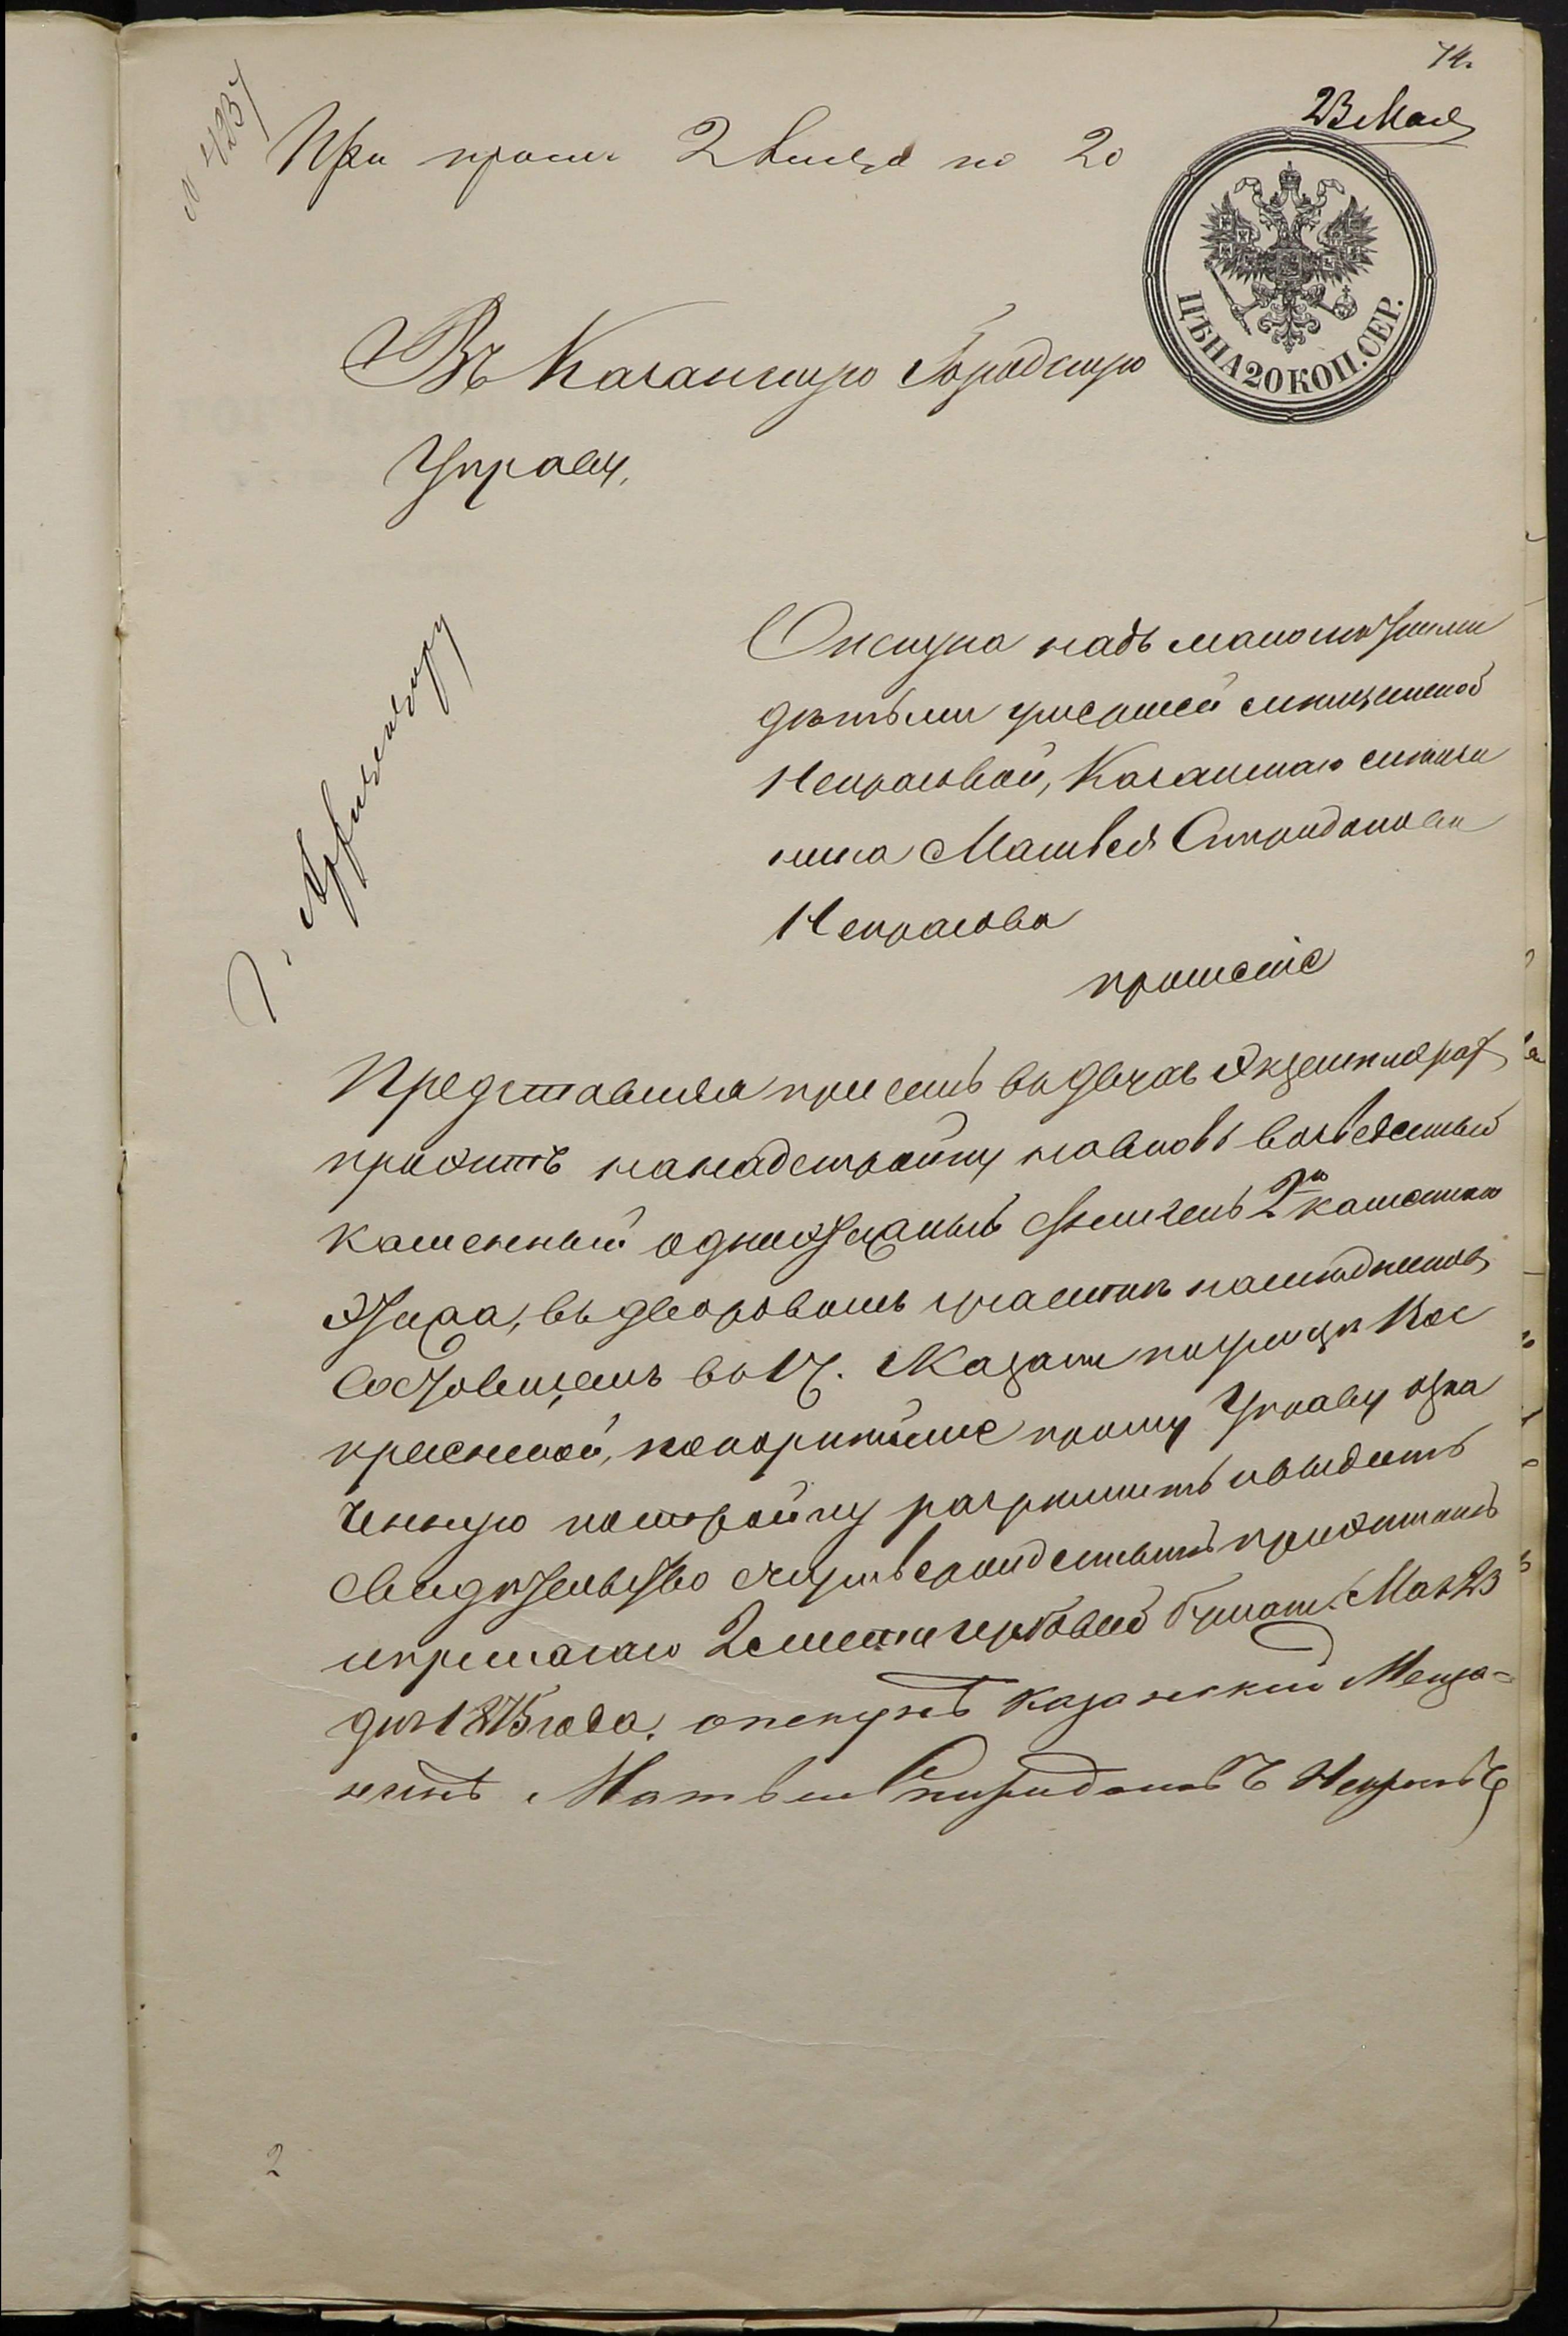 74.
23 Мая
№ 4237
При прош 2 листа по 20
ЦѢНА 20 КОП. СЕР.
Въ Казанскую Городскую
Управу,
Г. Архитектору
Опекуна надъ малолѣтними
дѣтьми умершей мѣщанкой
Некрасовой, Казанскаго мѣщан
нина Матвея Спиридонова
Некрасова
прошеніе
Представляя при семъ въ двухъ экземплярах
проэктъ на надстройку на вновь возведенный
каменный одноэтажный флигель 2го каменнаго
этажа, въ дворовомъ участкѣ наслѣдников
состоящемъ во 1 ч. г. Казани по улицѣ Вос
кресенской, покорнѣйше прошу Управу озна
ченную постройку разрѣшить и выдать
свидѣтельство съ утвержденнымъ проэктомъ
и прилагаю 2 листа гербовой бумаги. Мая 23
дня 1875 года. опекунъ казанский Меща-
нинъ Матвей Спиридоновъ Некрасовъ
2